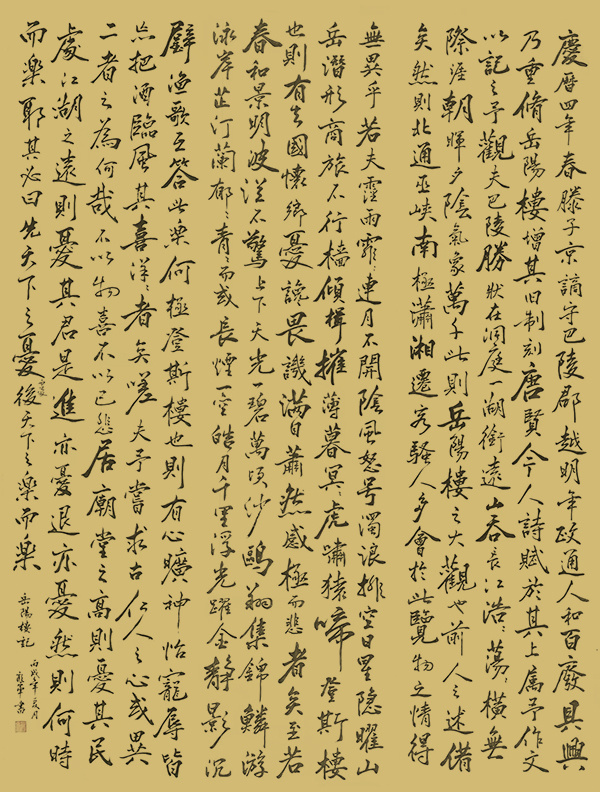 慶曆四年春滕子京謫守巴陵郡越明年政通人和百廢具興
乃重脩岳陽樓增其旧制刻唐賢今人詩賦於其上属予作文
以記之予觀夫巴陵勝狀在洞庭一湖銜遠山吞長江浩々蕩々橫無
際涯朝暉夕陰氣象萬千此則岳陽樓之大觀也前人之述備
矣然則北通巫峽南極瀟湘遷客騷人多會於此覽物之情得
無異乎若夫霪雨霏々連月不開陰風怒号濁浪排空日星隐曜山
岳潛形商旅不行檣傾楫摧薄暮冥々虎嘯猿啼登斯樓
也則有去國懷鄉憂讒畏譏滿目蕭然感極而悲者矣至若
春和景明波瀾不驚上下天光一碧萬頃沙鷗翔集錦鱗游
泳岸芷汀蘭郁々青々而或長煙一空皓月千里浮光躍金靜影沉
璧渔歌互答此樂何極登斯樓也則有心曠神怡寵辱皆
忘把酒臨風其喜洋々者矣嗟夫予嘗求古仁人之心或異
二者之為何哉不以物喜不以己悲居廟堂之高則憂其民
處江湖之遠則憂其君是進亦憂退亦憂然則何時
而樂耶其必曰先天下之憂而憂後天下之樂而樂
岳陽樓記
丙戌年夏月
書